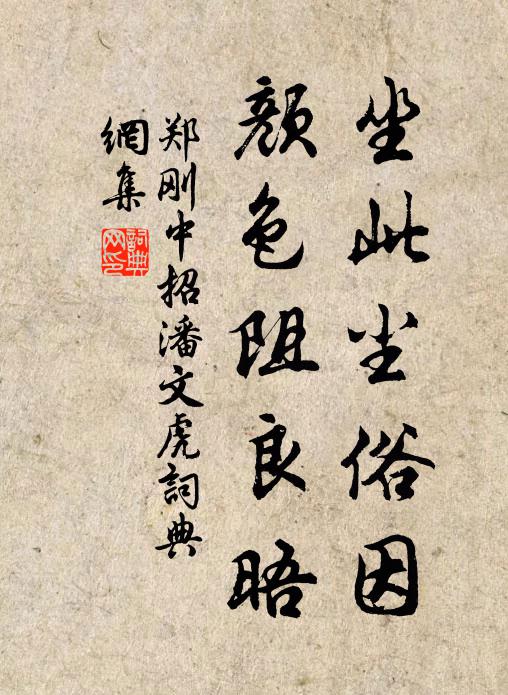 坐此尘俗因
颜色阻良晤
郑刚中招潘文虎词典
網集
詞典網印